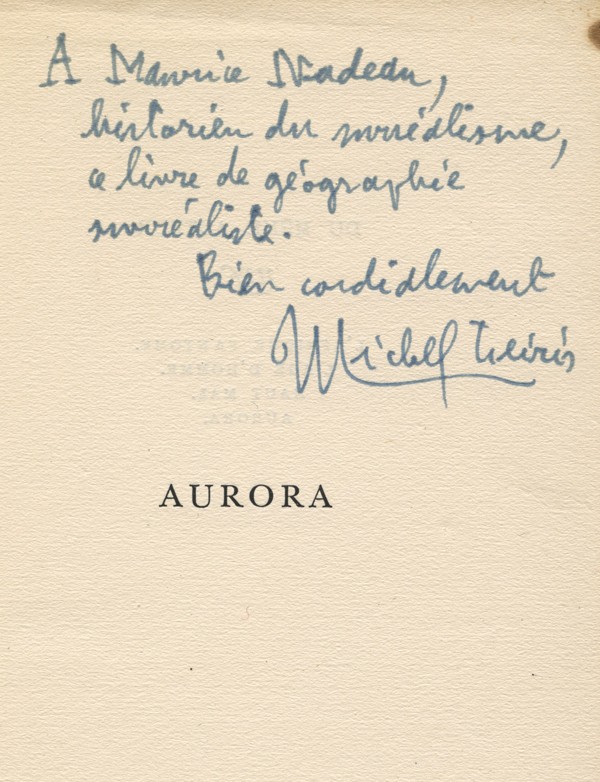 A Maurice Nadeau,
historien du surréalisme,
ce livre de géographie
surréaliste.
Bien cordialement
Michel Leiris
AURORA